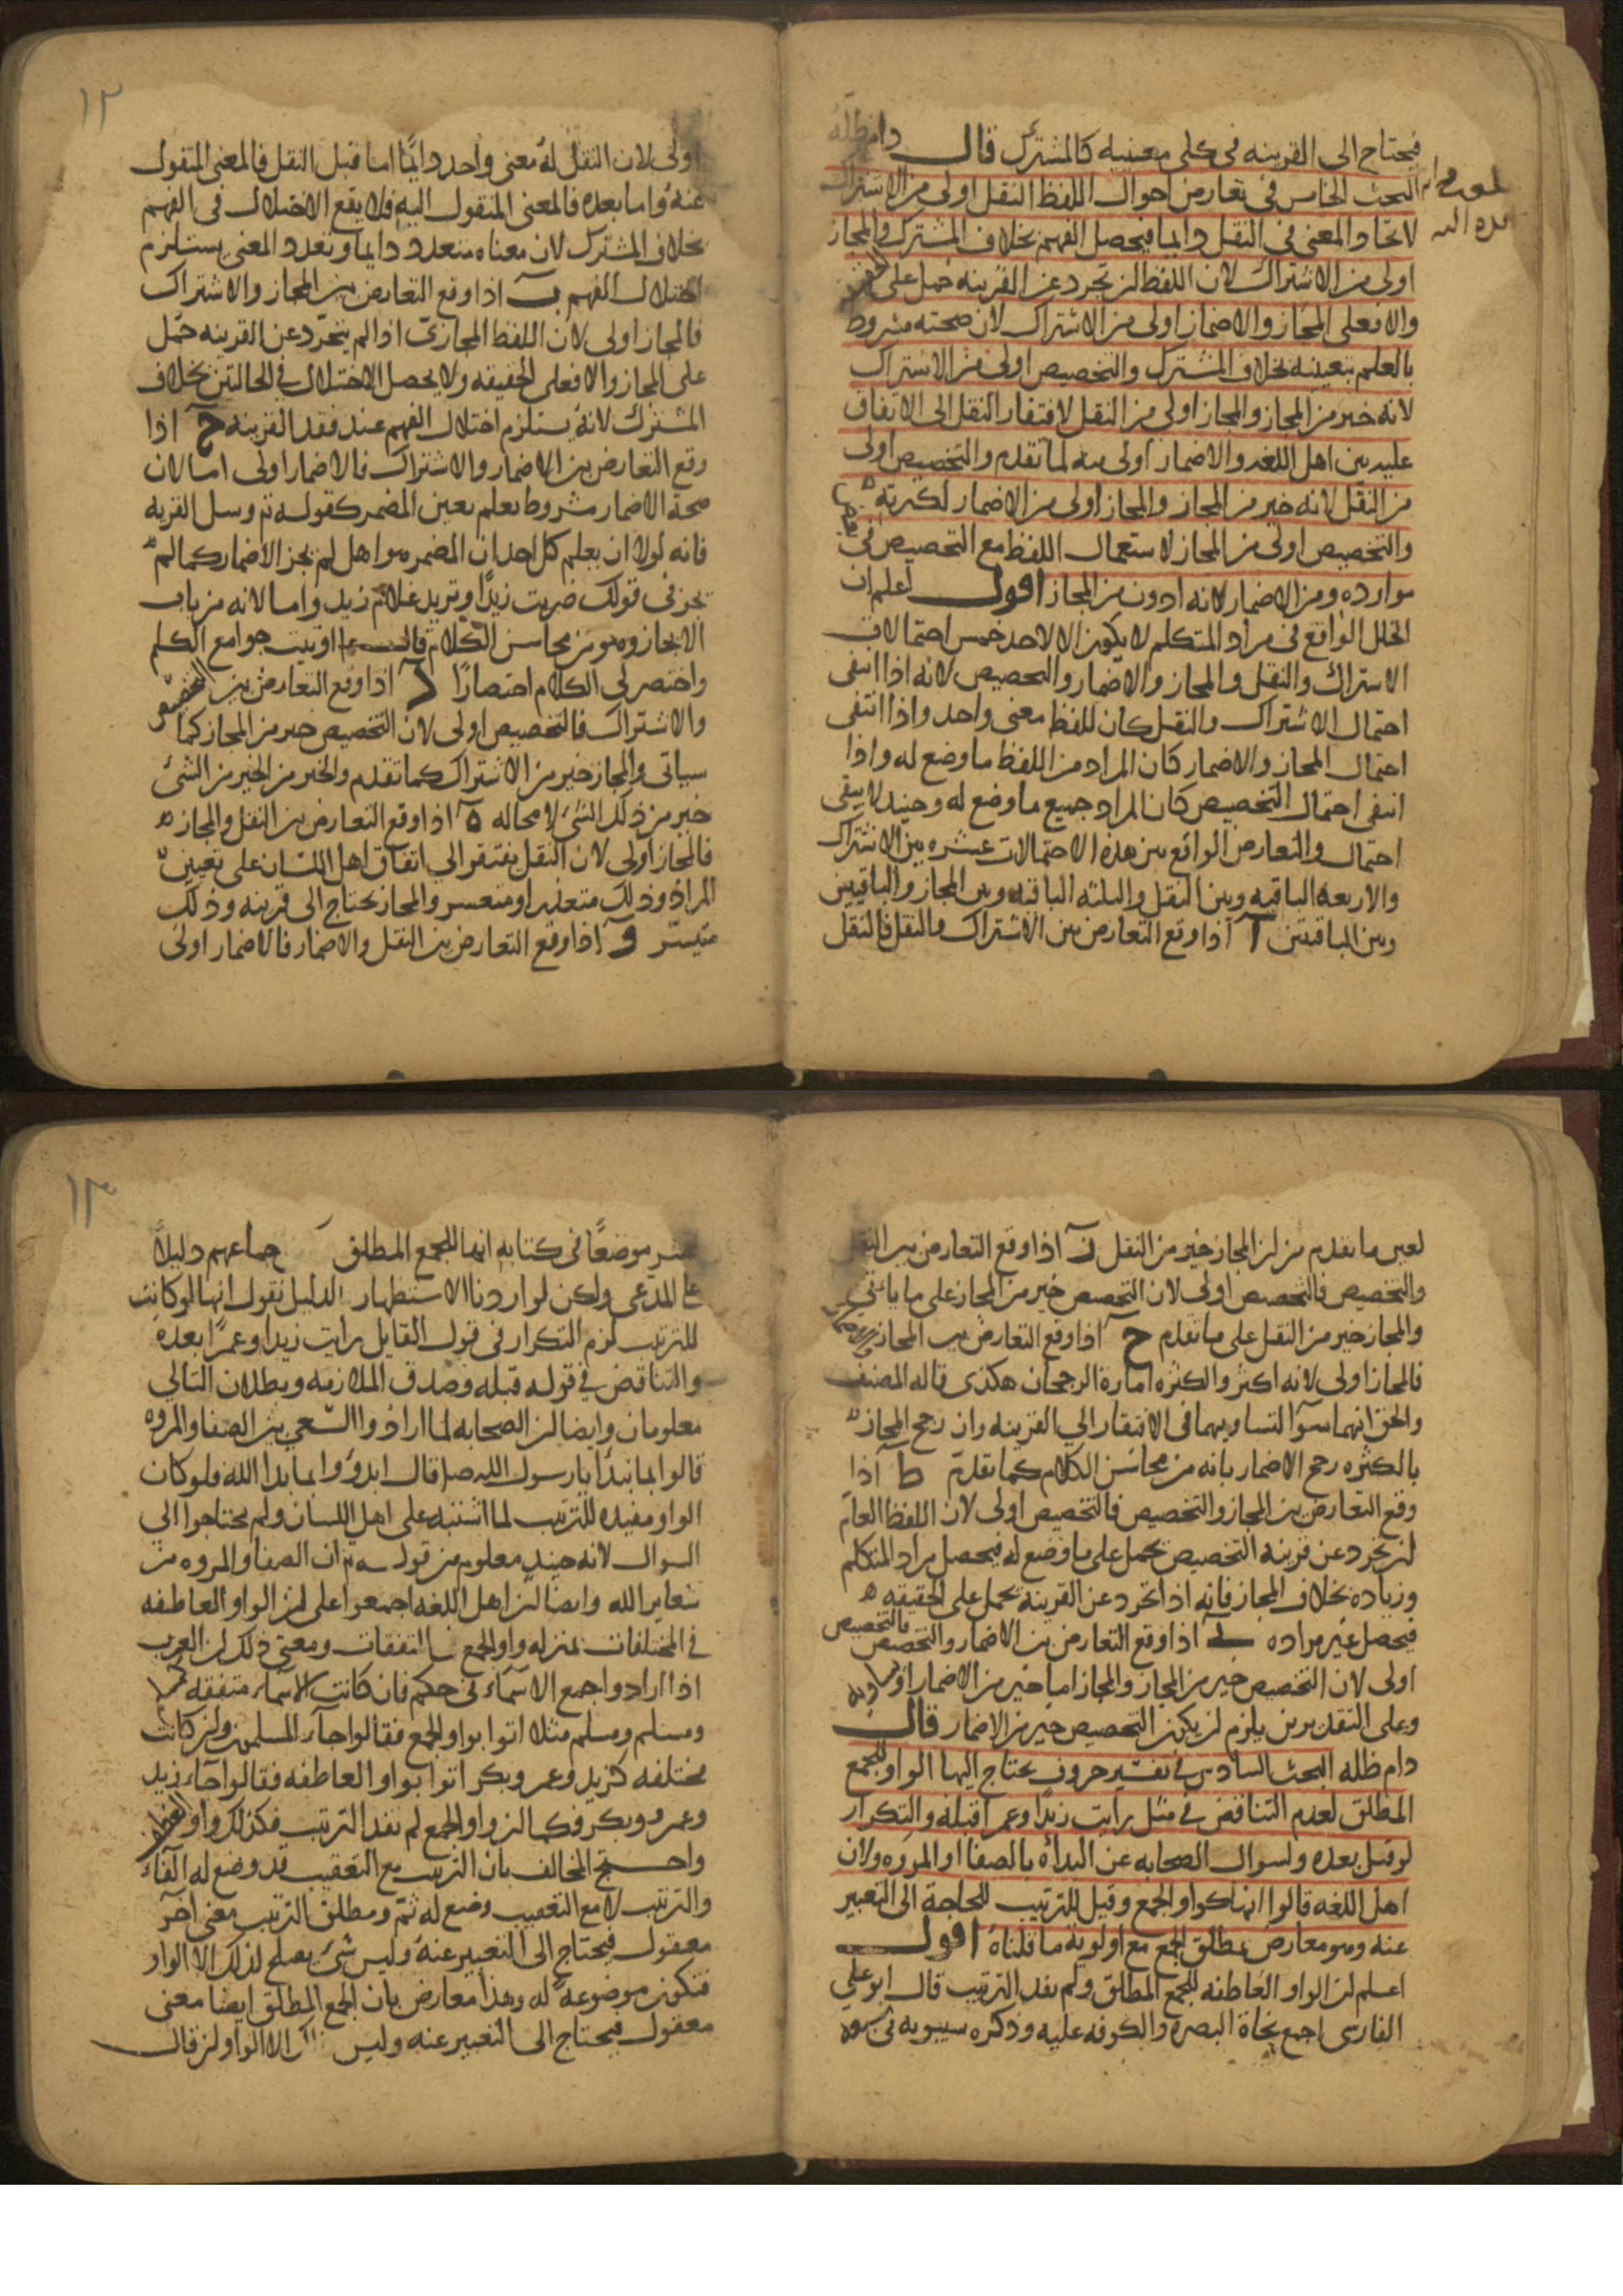 فيحتاج الى القرينه فى كلى معنييه كالمشترك قال دام ظله
البحث الخامس فى تعارض احوال اللفظ النقل اولى من الاشتراك
لاتحاد المعنى فى النقل دايما فيحصل الفهم بخلاف المشترك والمجاز
اولى من الاشتراك لان اللفظ ان تجرد عن القرينه حمل على
والا فعلى المجاز والاضمار اولى من الاشتراك لان صحته مشروط
بالعلم بتعيينه بخلاف المشترك والتخصيص اولى من الاشتراك
لانه خير من المجاز والمجاز اولى من النقل لافتقار النقل الى الاتفاق
عليه بين اهل اللغه والاضمار اولى منه لما تقدم والتخصيص اولى
من النقل لانه خير من المجاز والمجاز اولى من الاضمار لكثرته
والتخصيص اولى من المجاز لاستعمال اللفظ مع التخصيص فى
موارده ومن الاضمار لانه ادون من المجاز اقول اعلم ان
الخلل الواقع فى مراد المتكلم لا يكون الا لاحد خمس احتمالات
الاشتراك والنقل والمجاز والاضمار والتخصيص لانه اذا انتفى
احتمال الاشتراك والنقل كان للفظ معنى واحد واذا انتفى
احتمال المجاز والاضمار كان المراد من اللفظ ما وضع له واذا
انتفى احتمال التخصيص كان المراد جميع ما وضع له وحينيذ لا يبقى
احتمال والتعارض الواقع بين هذه الاحتمالات عشره بين الاشتراك
والاربعه الباقيه وبين النقل والثلثه الباقيه وبين المجاز والباقيين
وبين الباقيين آ اذا وقع التعارض بين الاشتراك والنقل فالنقل
١٢
اولى لان النقل له معنى واحد دايمًا اما قبل النقل فالمعنى المنقول
عنه واما بعده فالمعنى المنقول اليه فلا يقع الاختلال فى الفهم
بخلاف المشترك لان معناه متعدد دايما وتعدد المعنى يستلزم
اختلال الفهم ب اذا وقع التعارض بين المجاز والاشتراك
فالمجاز اولى لان اللفظ المجازى اذا لم يتجرد عن القرينه حمل
على المجاز والا فعلى الحقيقه ولا يحصل الاختلال فى الحالتين بخلاف
المشترك لانه يستلزم اختلال الفهم عند فقد القرينه ج اذا
وقع التعارض بين الاضمار والاشتراك فالاضمار اولى اما لان
صحة الاضمار مشروط بعلم تعين المضمر كقوله تع وسل القريه
فانه لولا ان يعلم كل احد ان المضمر هو اهل لم يجز الاضمار كما لم
يجز فى قولك ضربت زيدًا وتريد غلام زيد واما لانه من باب
الايجاز وهو من محاسن الكلام قال اوتيت جوامع الكلم
واختصر لى الكلام اختصارًا د اذا وقع التعارض بين التخصيص
والاشتراك فالتخصيص اولى لان التخصيص خير من المجاز كما
سياتى والمجاز خير من الاشتراك كما تقدم والخير من الخير من الشئ
خير من ذلك الشئ لا محاله ه اذا وقع التعارض بين النقل والمجاز
فالمجاز اولى لان النقل يفتقر الى اتفاق اهل اللسان على تعيين
المراد وذلك متعذر او متعسر والمجاز يحتاج الى قرينه وذلك
متيسر و اذا وقع التعارض بين النقل والاضمار فالاضمار اولى
لعين ما تقدم من ان المجاز خير من النقل ز اذا وقع التعارض بين النقل
والتخصيص فالتخصيص اولى لان التخصيص خير من المجاز على ما ياتى
والمجاز خير من النقل على ما تقدم ح اذا وقع التعارض بين المجاز
فالمجاز اولى لانه اكثر والكثره امارة الرجحان هكذى قاله المصنف
والحق انهما سوآ لتساويهما فى الافتقار الى القرينه وان رجح المجاز
بالكثره رجح الاضمار بانه من محاسن الكلام كما تقدم ط اذا
وقع التعارض بين المجاز والتخصيص فالتخصيص اولى لان اللفظ العام
ان تجرد عن قرينه التخصيص يحمل على ما وضع له فيحصل مراد المتكلم
وزياده بخلاف المجاز فانه اذا تجرد عن القرينه يحمل على الحقيقه
فيحصل غير مراده ى اذا وقع التعارض بين الاضمار والتخصيص فالتخصيص
اولى لان التخصيص خير من المجاز والمجاز اما خير من الاضمار او
وعلى التقديرين يلزم ان يكون التخصيص خير من الاضمار قال
دام ظله البحث السادس فى تفسير حروف يحتاج اليها الواو للجمع
المطلق لعدم التناقض فى مثل رايت زيدًا وعمرا قبله والتكرار
لو قيل بعده ولسوال الصحابه عن البداه بالصفا او المروه ولان
اهل اللغه قالوا انها كواو الجمع وقيل للترتيب للحاجة الى التعبير
عنه وهو معارض بمطلق الجمع مع اولوية ما قلناه اقول
اعلم ان الواو العاطفه للجمع المطلق ولم يفد الترتيب قال ابو على
الفارسى اجمع نحاة البصره والكوفه عليه وذكره سيبويه فى
١٣
عشر موضعًا فى كتابه انها للجمع المطلق جماعهم دليلًا
على المدعى ولكن لو اردنا الاستظهار الدليل نقول انها لو كانت
للترتيب لزم التكرار فى قول القايل رايت زيدا وعمرًا بعده
والتناقض فى قوله قبله وصدق الملازمه وبطلان التالى
معلومان وايضا لان الصحابه لما ارادوا السعى بين الصفا والمروه
قالوا بما نبدأ يا رسول الله ص قال ابدؤوا بما بدا الله فلو كان
الواو مفيده للترتيب لما اشتبه على اهل اللسان ولم يحتاجوا الى
السوال لانه حينيذ معلوم من قوله تع ان الصفا والمروه من
شعاير الله وايضا ان اهل اللغه اجمعوا على ان الواو العاطفه
فى المختلفات بمنزله واو الجمع فى المتفقات ومعنى ذلك ان العرب
اذا ارادوا جمع الاسمآء فى حكم فان كانت الاسمآء متفقه
ومسلم ومسلم مثلا اتوا بواو الجمع فقالوا جآء المسلمون وان كانت
مختلفه كزيد وعمرو وبكر اتوا بواو العاطفه فقالوا جآء زيد
وعمرو وبكر فكما ان واو الجمع لم يفد الترتيب فكذلك واو العطف
واحتج المخالف بان الترتيب مع التعقيب قد وضع له الفآء
والترتيب لا مع التعقيب وضع له ثم ومطلق الترتيب معنى آخر
معقول فيحتاج الى التعبير عنه وليس شئ يصلح لذلك الا الواو
فتكون موضوعة له وهذا معارض بان الجمع المطلق ايضا معنى
معقول فيحتاج الى التعبير عنه وليس الا الواو لان قال